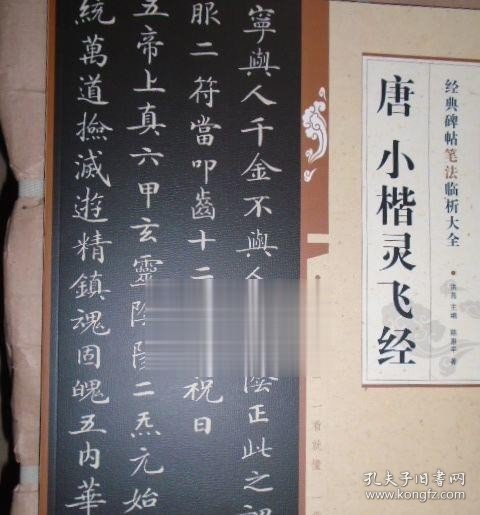 寧與人千金不與人
陰正此之
服二符當叩齒十二
祝曰
五帝上真六甲玄靈陰陽二炁元始
統萬道撿滅遊精鎮魂固魄五内華
唐 小楷灵飞经
经典碑帖笔法临析大全
洪亮 主编
著
一看就懂
孔夫子旧书网
www.kongfz.com